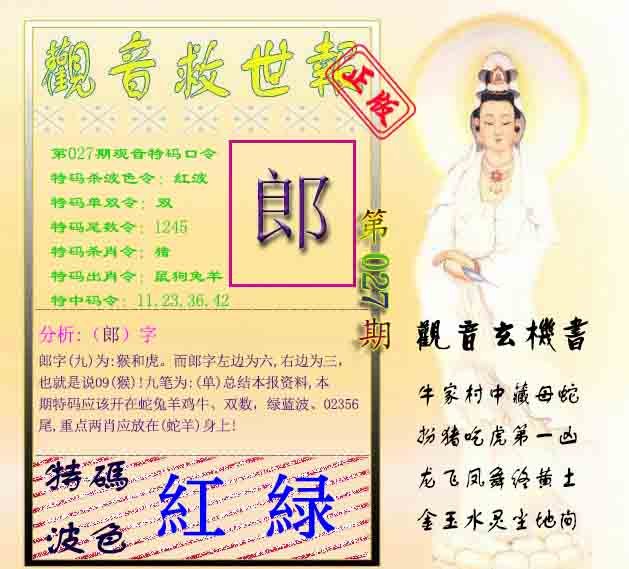 觀音救世報
正版
第027期观音特码口令
特码杀波色令：紅波
特码单双令：双
特码尾数令：1245
特码杀肖令：猪
特码出肖令：鼠狗兔羊
特中码令：11.23.36.42
郎
第027期
分析：（郎）字
郎字(九)为:猴和虎。而郎字左边为六,右边为三，
也就是说09(猴)!九笔为:(单)总结本报资料,本
期特码应该开在蛇兔羊鸡牛、双数，绿蓝波、02356
尾,重点两肖应放在(蛇羊)身上!
特碼
波色
紅 緑
觀音玄機書
牛家村中藏母蛇
扮猪吃虎第一凶
龙飞凤舞终黄土
金玉水灵尘地间